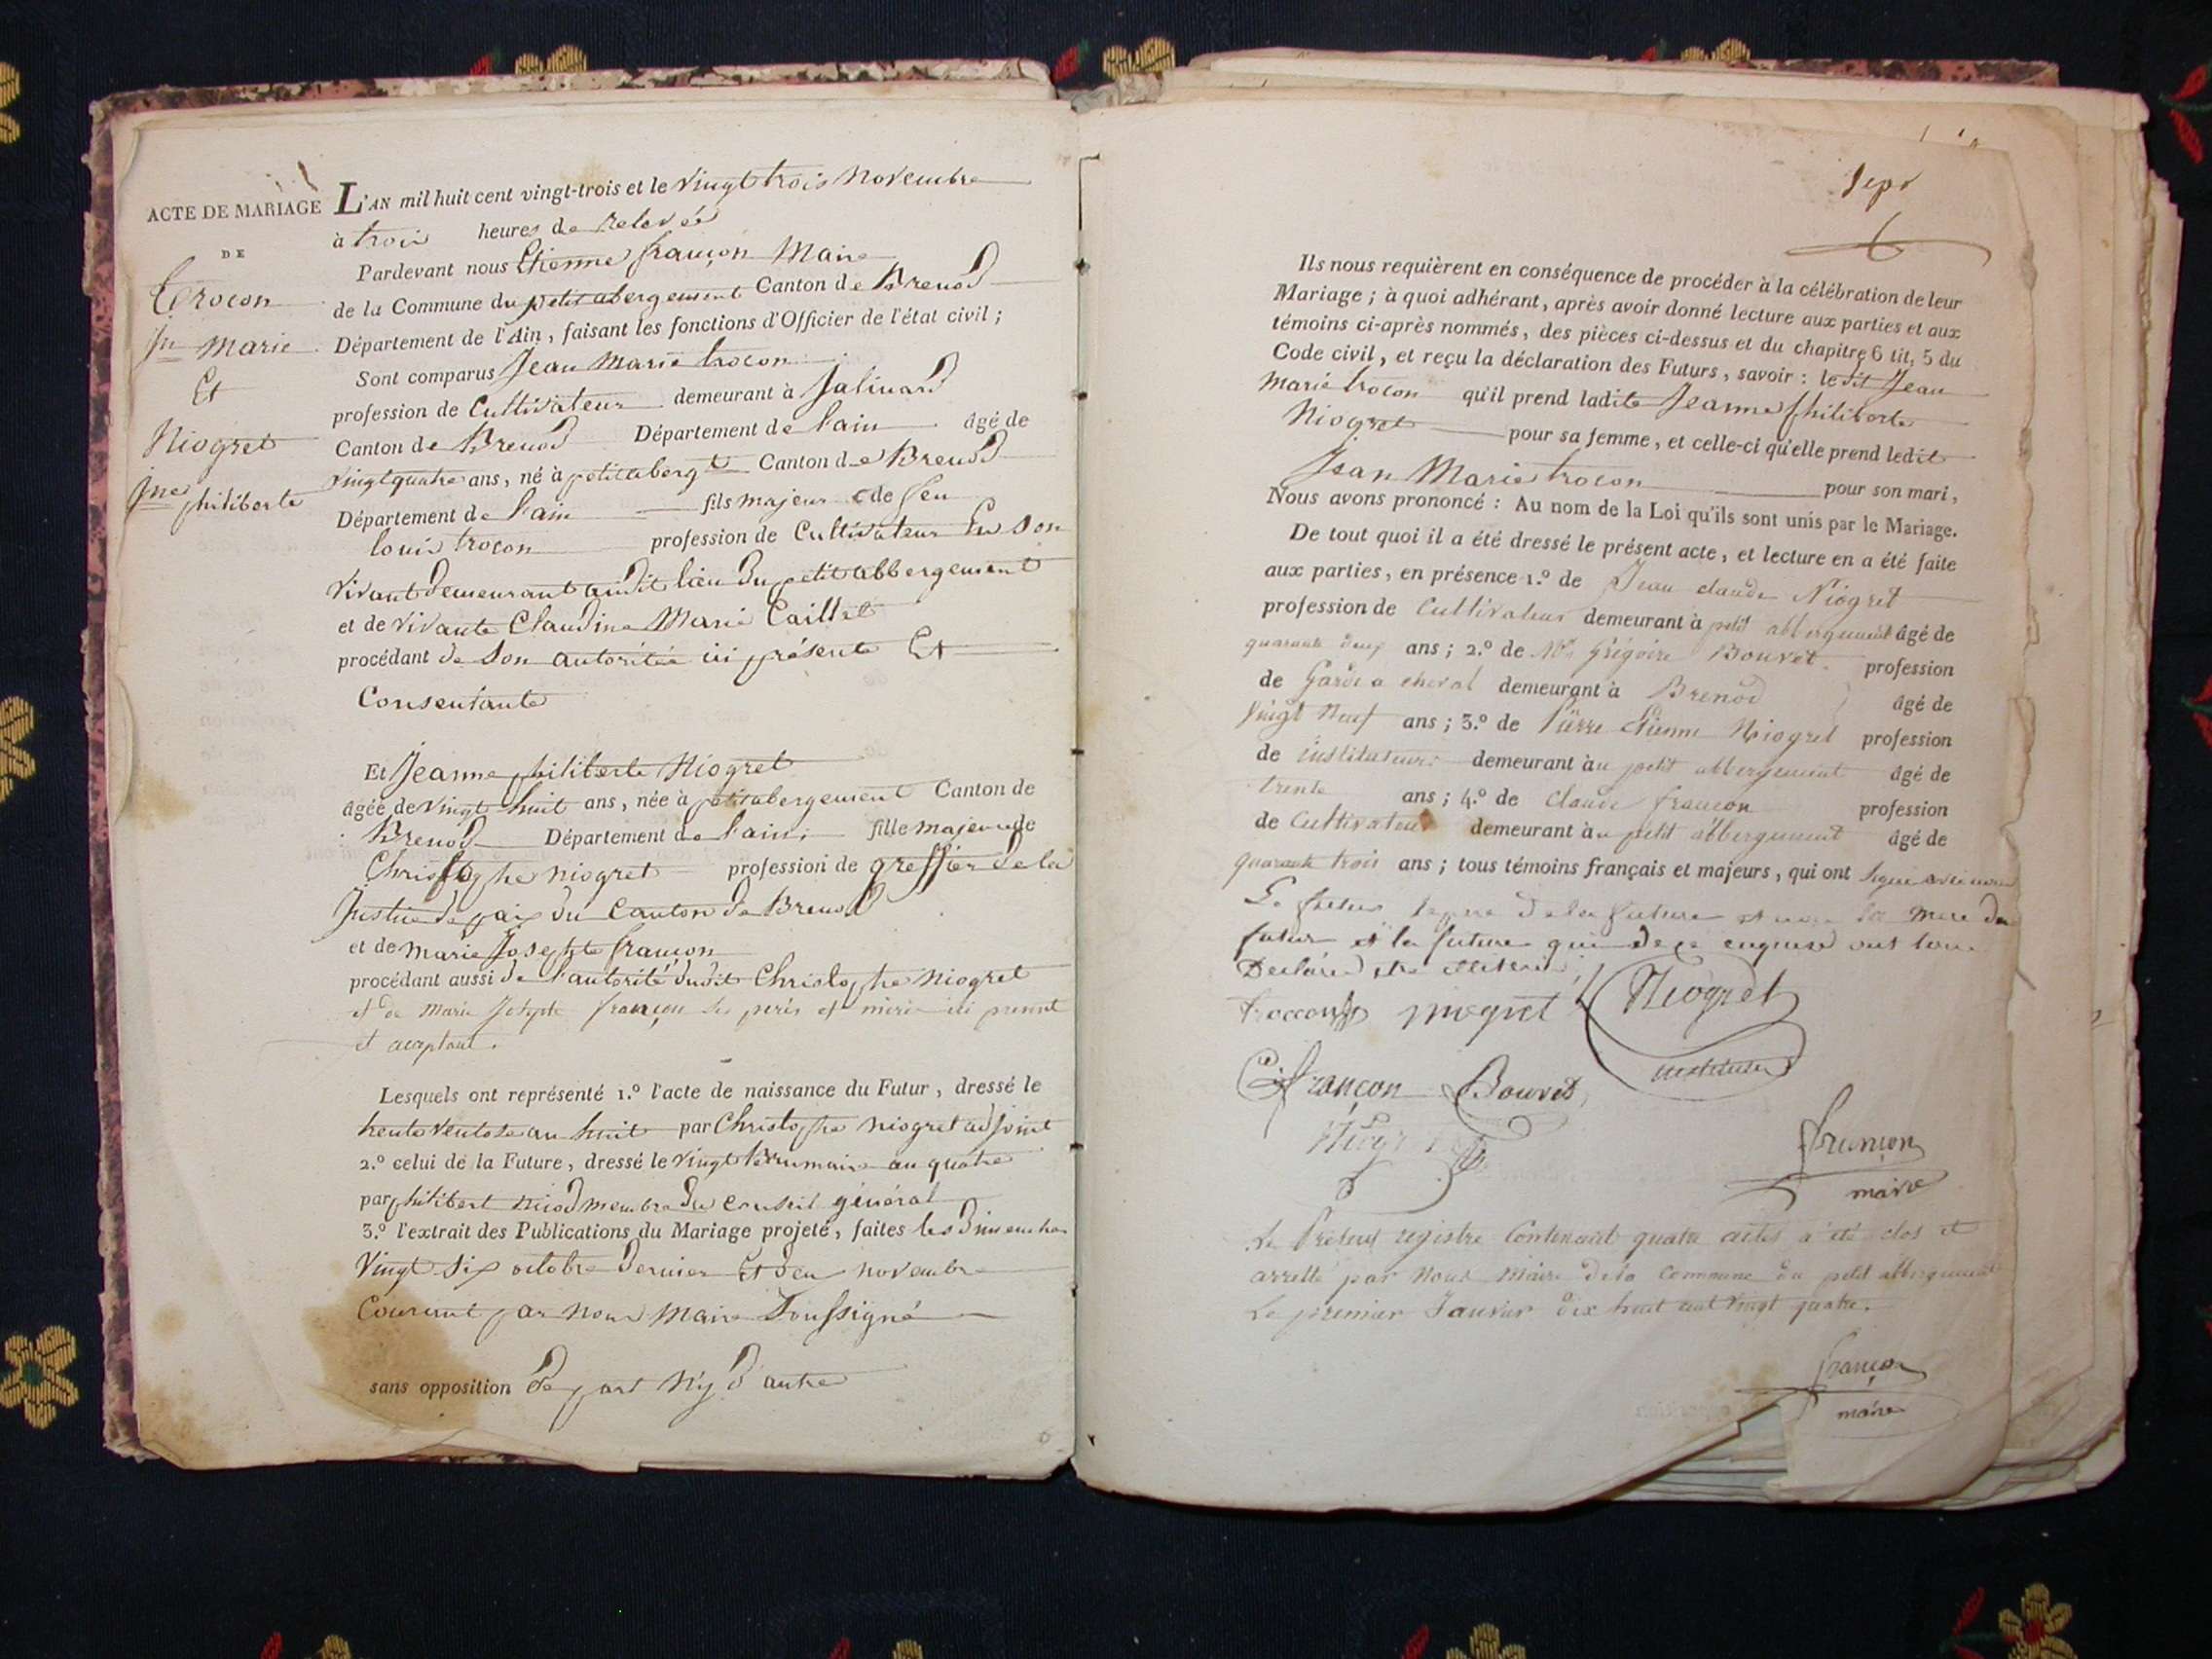 ACTE DE MARIAGE
DE
Trocon
Jn Marie
Et
Niogret
Jne philiberte
L'AN mil huit cent vingt-trois et le vingt trois Novembre
à trois heures de relevée
Pardevant nous Etienne françon Maire
de la Commune du petit abergement Canton de Brenod
Département de l'Ain, faisant les fonctions d'Officier de l'état civil;
Sont comparus Jean Marie trocon
profession de Cultivateur demeurant à Jalinard
Canton de Brenod Département de l'ain âgé de
vingt quatre ans, né à petit abergt Canton de Brenod
Département de l'ain fils majeur de feu
louis trocon profession de Cultivateur En son
vivant demeurant audit lieu du petit abbergement
et de vivante Claudine Marie Caillet
procédant de son autoritée ici présente Et
Consentante
Et Jeanne philiberte Niogret
âgée de vingt huit ans, née à petit abergement Canton de
Brenod Département de l'ain fille majeure de
Christophe niogret profession de greffier de la
Justice de paix du Canton de Brenod
et de marie Josephte françon
procédant aussi de l'autorité dudit Christophe Niogret
et de Marie Josephte françon ses peres et mere ici present
et aceptant.
Lesquels ont représenté 1.º l'acte de naissance du Futur, dressé le
trente ventose an huit par Christophe niogret adjoint
2.º celui de la Future, dressé le vingt brumaire an quatre
par philibert niod membre du conseil général
3.º l'extrait des Publications du Mariage projeté, faites les dimenches
vingt six octobre dernier Et deux novembre
Courant par nous Maire Soussigné
sans opposition de part N'y d'autre
sept
Ils nous requièrent en conséquence de procéder à la célébration de leur
Mariage; à quoi adhérant, après avoir donné lecture aux parties et aux
témoins ci-après nommés, des pièces ci-dessus et du chapitre 6 tit, 5 du
Code civil, et reçu la déclaration des Futurs, savoir: le dit Jean
Marie trocon qu'il prend ladite Jeanne philiberte
Niogret pour sa femme, et celle-ci qu'elle prend ledit
Jean Marie trocon pour son mari,
Nous avons prononcé: Au nom de la Loi qu'ils sont unis par le Mariage.
De tout quoi il a été dressé le présent acte, et lecture en a été faite
aux parties, en présence 1.º de Jean claude Niogret
profession de Cultivateur demeurant à petit abbergement âgé de
quarante deux ans; 2.º de Grégoire Bouvet profession
de Garde a cheval demeurant à Brenod âgé de
vingt Neuf ans; 3.º de Pierre Etienne Niogret profession
de instituteur demeurant àu petit abbergement âgé de
trente ans; 4.º de claude françon profession
de Cultivateur demeurant àu petit abbergement âgé de
quarante trois ans; tous témoins français et majeurs, qui ont signé avec nous
Le futur le pere de la future et non la mere du
futur et la future qui de ce enquise ont
Declarée illiterée
troccon niogret Niogret
instituteur
C françon Bouvet
Niogret
françon
maire
Le Présent registre Contenant quatre actes a été clos et
arrêtté par Nous Maire de la Commune du petit abbergement
Le premier Janvier dix huit cent vingt quatre.
françon
maire